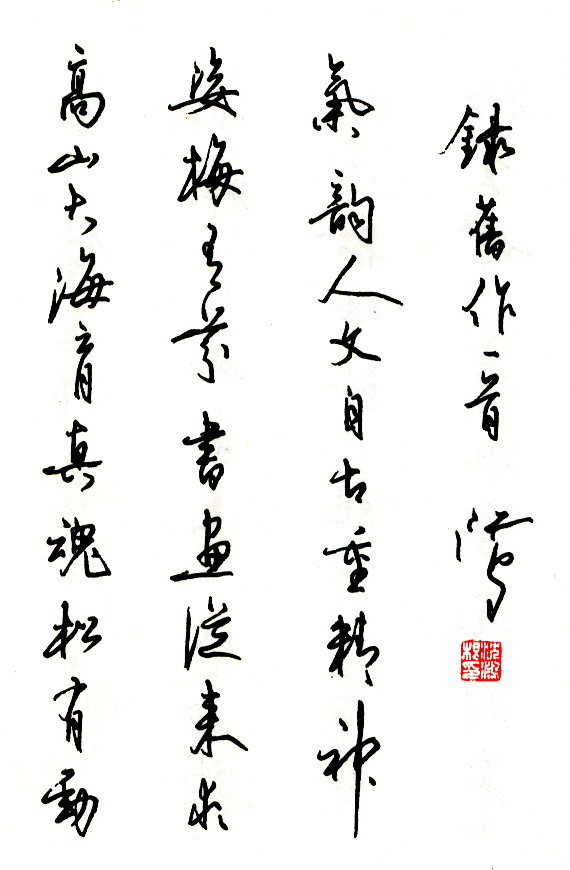 高山大海育真魂松有勁
姿梅有芬書画從來求
氣韵人文自古重精神
録舊作一首